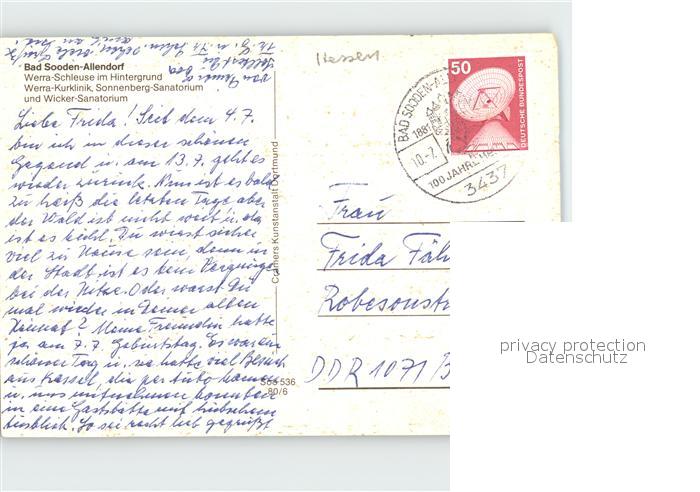 Bad Sooden-Allendorf
Werra-Schleuse im Hintergrund
Werra-Kurklinik, Sonnenberg-Sanatorium
und Wicker-Sanatorium
Liebe Frida! Seit dem 4.7.
bin ich in dieser schönen
Gegend u. am 13.7. geht es
wieder zurück. Nun ist es bald
zu heiß die letzten Tage aber
der Wald ist nicht weit u. da
ist es kühl. Du wirst sicher
viel zu Hause sein, denn in
der Stadt ist es kein Vergnügen
bei der Hitze. Oder warst Du
mal wieder in Deiner alten
Heimat? Meine Freundin hatte
ja am 7.7. Geburtstag. Es war ein
schöner Tag u. sie hatte viel Besuch
aus Kassel, die per Auto kamen
u. uns mitnehmen konnten
in eine Gaststätte mit hübschem
Ausblick. So sei recht lieb gegrüßt
von
Hessen
50
DEUTSCHE BUNDESPOST
BAD SOODEN-AL
1881
10.-7.
100 JAHRE
3437
Cramers Kunstanstalt Dortmund
Soa 536
80/6
Frau
Frida Fäh
Robesonstr
DDR 1071 B
privacy protection
Datenschutz